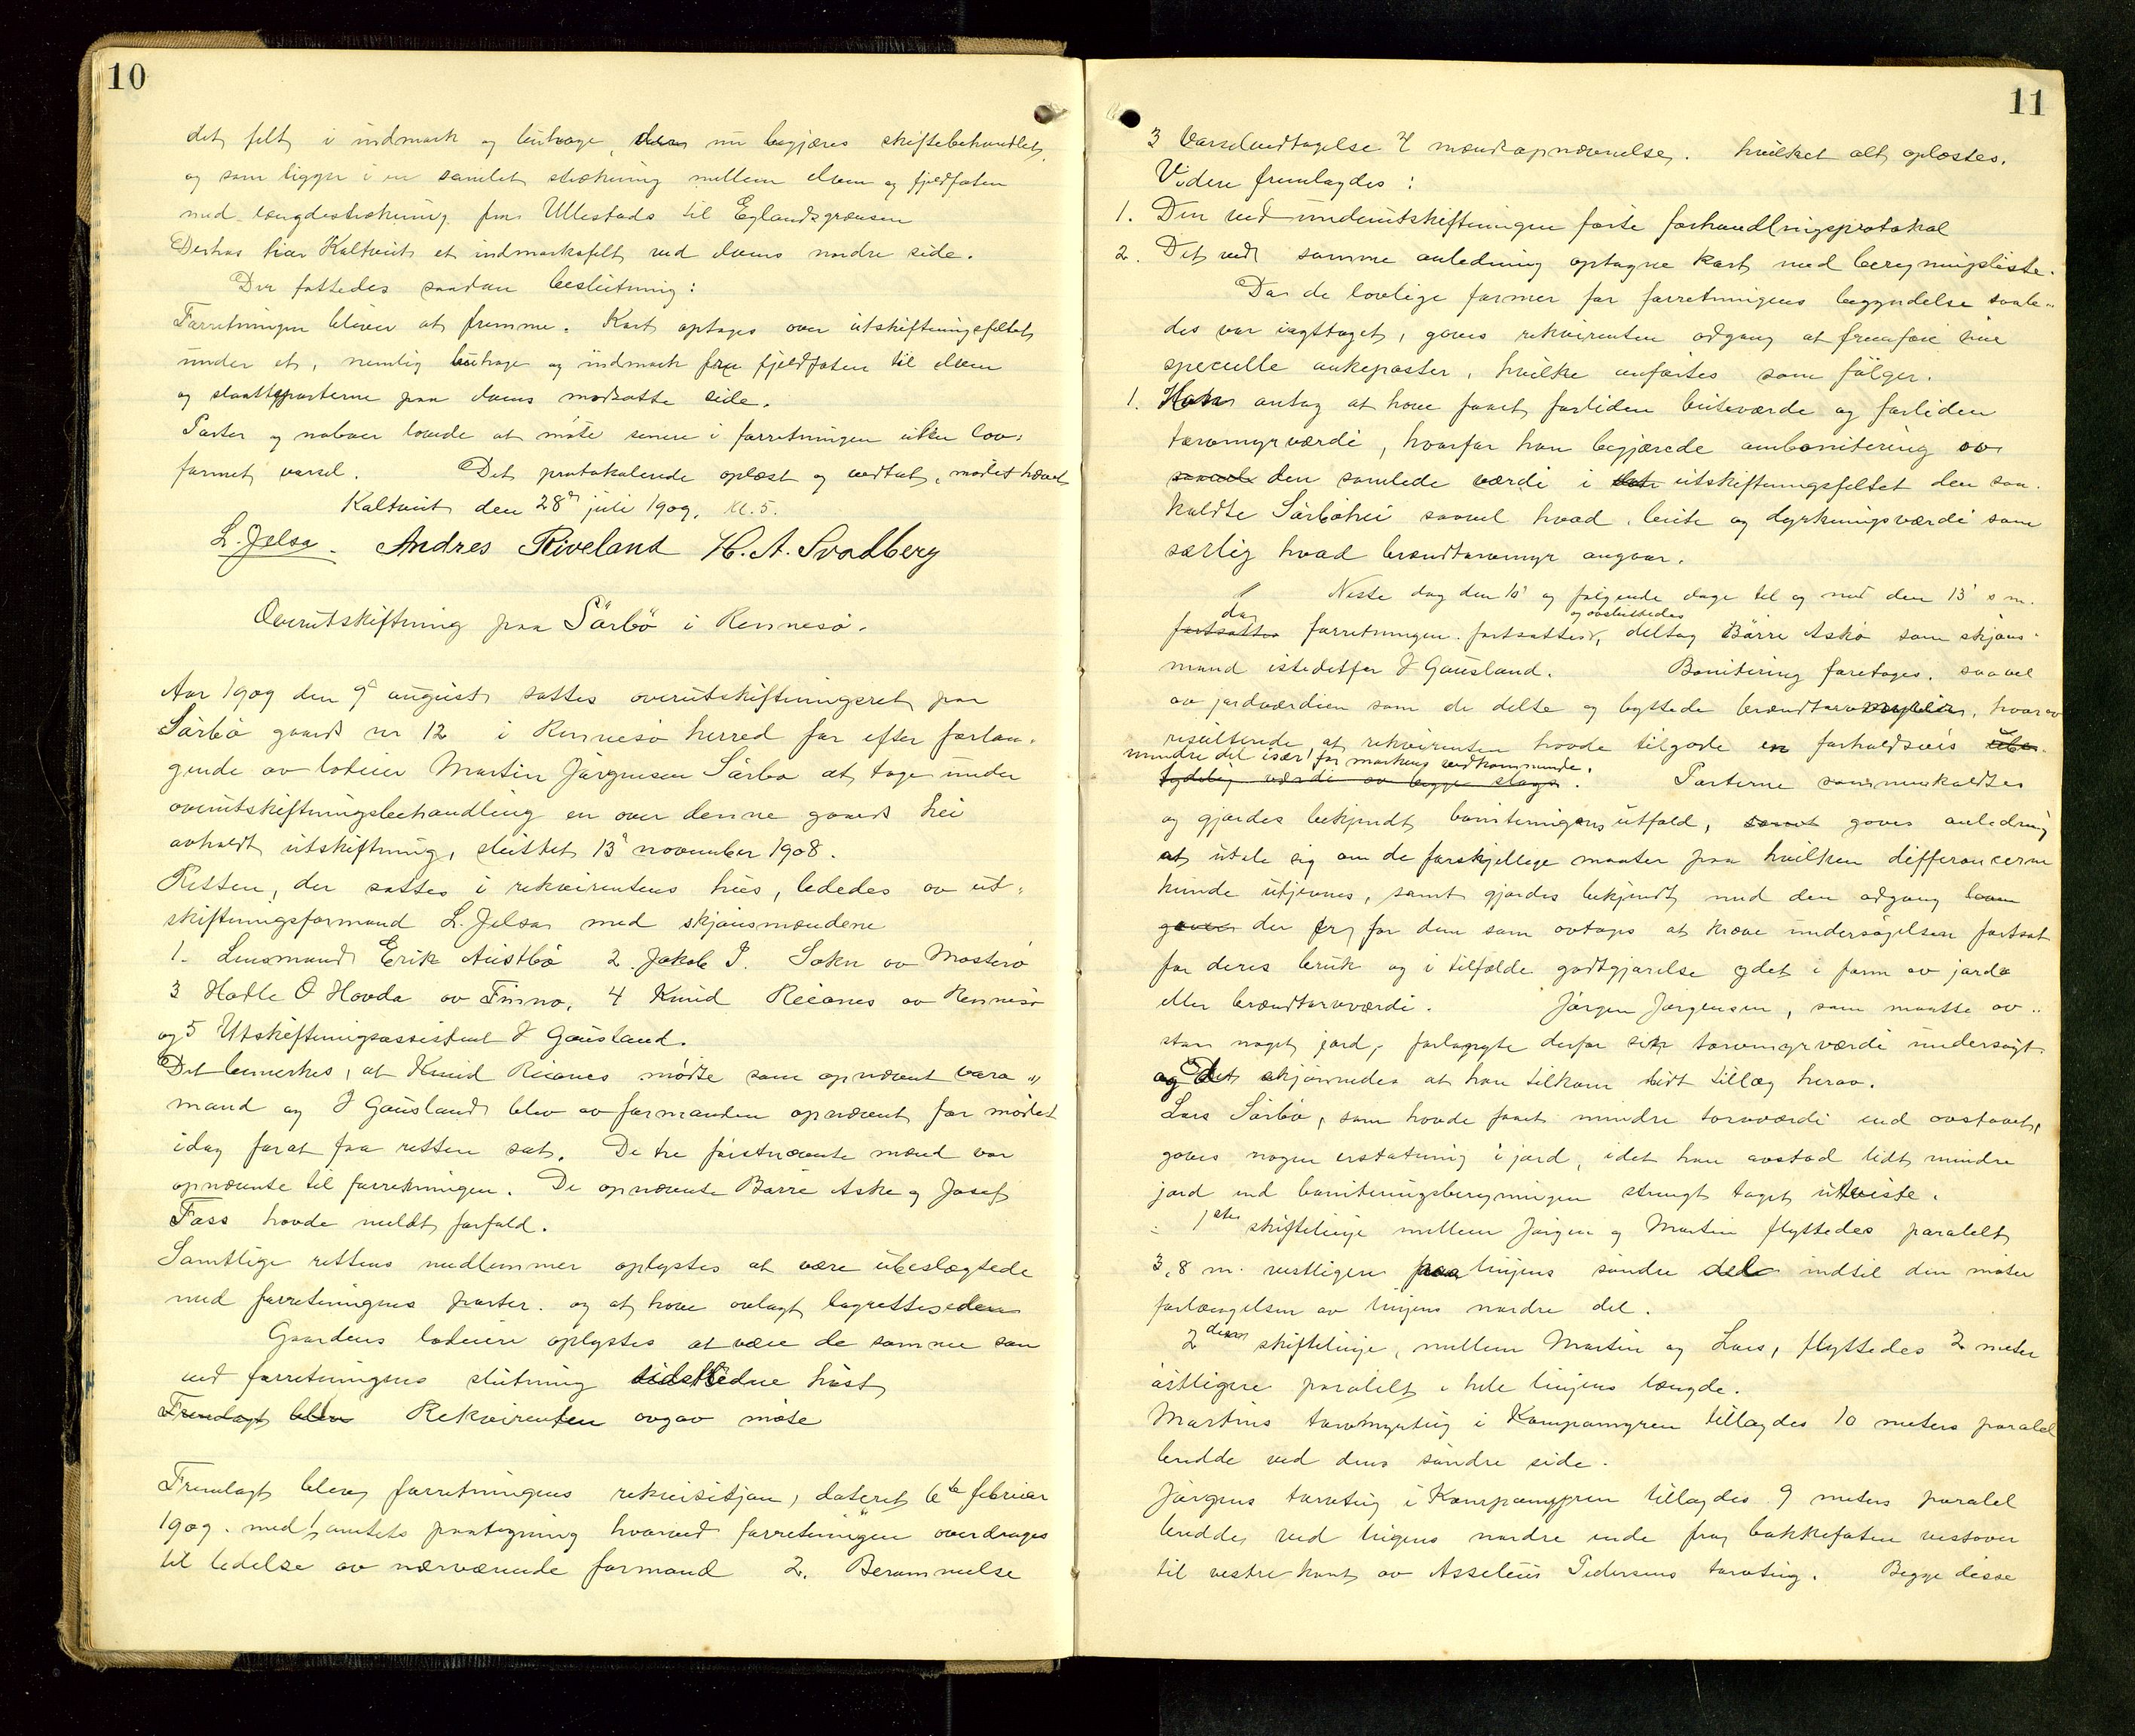 10
det felt i indmark og buhage, der nu begjæres skiftebehandlet,
og som ligger i en samlet strekning mellem elven og fjeldfoten
med længdestrekning fra Ullestads til Eglandsgrænsen
Derhos har Kaltveit et indmarksfelt ved elvens nordre side.
Der fattedes saadan beslutning:
Forretningen bliver at fremme. Kart optages over utskiftningsfeltet
under et, nemlig buhage og indmark fra fjeldfoten til elven
og slaatteparterne paa elvens motsatte side.
Parter og naboer lovede at møte senere i forretningen uten lov-
formet varsel. Det protokolerede oplæst og vedtat, møtet hævet
Kaltveit den 28de juli 1909. kl. 5.
L. Jelsa. Andres Riveland H. A. Svadberg
Overutskiftning paa Sörbö i Rennesö.
Aar 1909 den 9de august sattes overutskiftningsret paa
Sörbö gaards nr 12 i Rennesö herred for efter forlan-
gende av lodeier Martin Jörgensen Sörbö at tage under
overutskiftningsbehandling en over denne gaards hei
avholdt utskiftning, sluttet 13de november 1908.
Retten, der sattes i rekvirentens hus, lededes av ut-
skiftningsformand L. Jelsa med skjønsmændene
1. Lensmand Erik Austbö 2. Jakob I. Sokn av Mosterö
3 Hodle O Hovda av Finnö, 4 Knud Reianes av Rennesö
og 5 Utskiftningsassistent J Gausland.
Det bemerkes, at Knud Reianes mødte som opnævnt vara-
mand og J Gausland blev av formanden opnævnt for mødet
idag forat faa retten sat. De tre førstnævnte mænd var
opnævnte til forretningen. De opnævnte Børre Askø og Josef
Foss hovde meldt forfald.
Samtlige rettens medlemmer oplystes at være ubeslægtede
med forretningens parter og at have avlagt lagrettesed
Gaardens lodeiere oplystes at være de samme som
ved forretningens slutning sidstledne høst
Fremlagt blev Rekvirenten avgav møte
Fremlagt blev forretningens rekvisitjon, dateret 6te februar
1909. med amtets paategning hvorved forretningen overdrages
til ledelse av nærværende formand 2. Berammelse
11
3 Varselvedtagelse 4 mændsopnævnelse. hvilket alt oplæstes.
Videre fremlagdes:
1. Den ved underutskiftningen førte forhandlingsprotokol
2. Det ved samme anledning optagne kart med beregningsliste.
Da de lovlige former for forretningens begyndelse saale-
des var iagttaget, gaves rekvirenten adgang at fremføre sine
specielle ankeposter, hvilke anførtes som følger.
1. Han antog at have faaet forliden beiteværde og forliden
torvmyrværdi, hvorfor han begjærede ombonitering av
saavel den samlede værdi i det utskiftningsfeltet den saa-
kaldte Sörböhei saavel hvad beite og dyrkningsværdi som
særlig hvad brændtorvmyr angaar.
Neste dag den 10de og følgende dage til og med den 13de s m.
da og avsluttedes
fortsattes forretningen fortsattes, deltog Börre Askö som skjøns-
mand istedetfor J Gausland. Bonitering foretoges, saavel
av jordværdien som de delte og byttede brændtorvmyrer, hvorav
resulterede, at rekvirenten hovde tilgode en forholdsvis ube-
mindre del især for markens vedkommende.
tydelig værdi av begge slags. Parterne sammenkaldtes
og gjordes bekjendt boniteringens utfald, samt gaves anledning
at utale sig om de forskjellige maater paa hvilken differancerne
kunde utjevnes, samt gjordes bekjendt med den adgang loven
gaves der for for dem som avtages at kræve undersøgelsen fortsat
for deres bruk og i tilfælde godtgjørelse ydet i form av jord
eller brændtorvværdi. Jørgen Jørgensen, som maatte av-
staa noget jord, forlangte derfor sin torvmyrværdi undersøgt
og Det skjønnedes at han tilkom lidt tillæg herav.
Lars Sörbö, som hovde faaet mindre torvværdi end avstaaet,
gaves nogen erstatning i jord, idet han avstod lidt mindre
jord end boniteringsberegningen strengt taget utviste.
1ste skiftelinje mellem Jørgen og Martin flyttedes paralelt
3,8 m. vestligere paa linjens søndre del indtil den møter
forlængelsen av linjens nordre del.
2den skiftelinje, mellem Martin og Lars, flyttedes 2 meter
østligere paralelt i hele linjens længde.
Martins torvmyrteig i Kampamyren tillagdes 10 meters paralel
bredde ved dens søndre side.
Jørgens torvteig i Kampamyren tillagdes 9 meters paralel
bredde, ved teigens nordre ende fra bakkefoten vestover
til vestre kant av Asseleus Pedersens torvteig. Begge disse